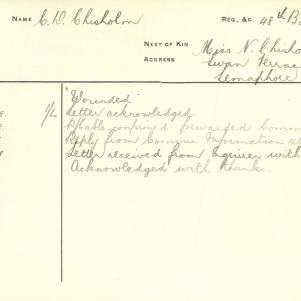 NAME C. D. Chisholm REG., &C. 48th B
NEXT OF KIN Miss N. Chisho
ADDRESS Swan Terrac
Semaphore
"Wounded"
1/L Letter acknowledged.
P/Table confirmed. forwarded
Reply from Commrs. Information
Letter received from Inquirer with
Acknowledged with thanks.